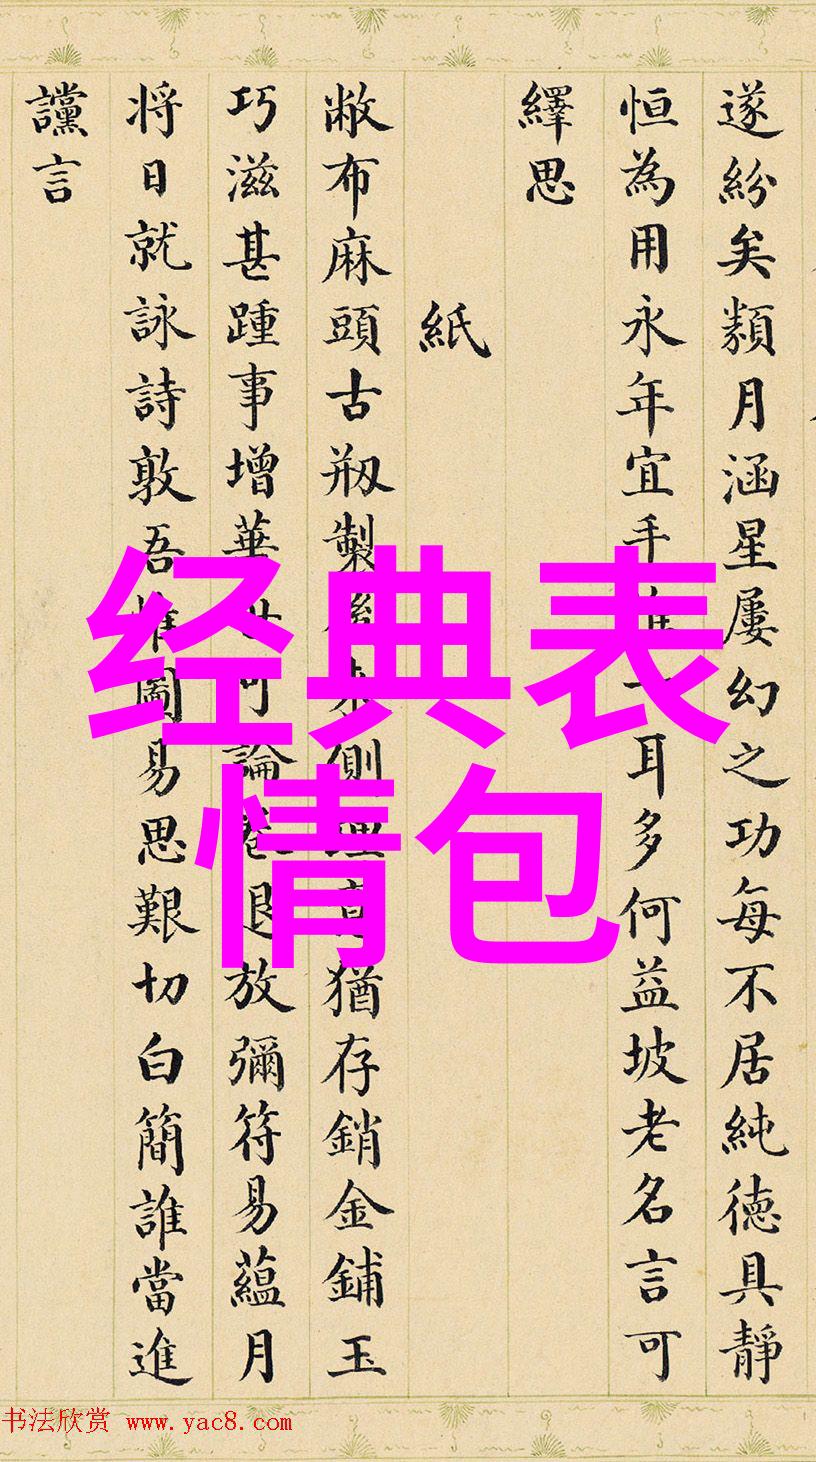 遂紛矣類月涵星屢幻之功每不居純德具靜
恒為用永年宜手
耳多何益坡老名言可
繹思
紙
敝布麻頭古剏製
側理
猶存銷金鋪玉
巧滋甚踵事增華
可論
退放彌符易蘊月
将日就詠詩敦吾惟圖易思艱切白簡誰當進
讜言
经典表
情包
书法欣赏 www.yac8.com